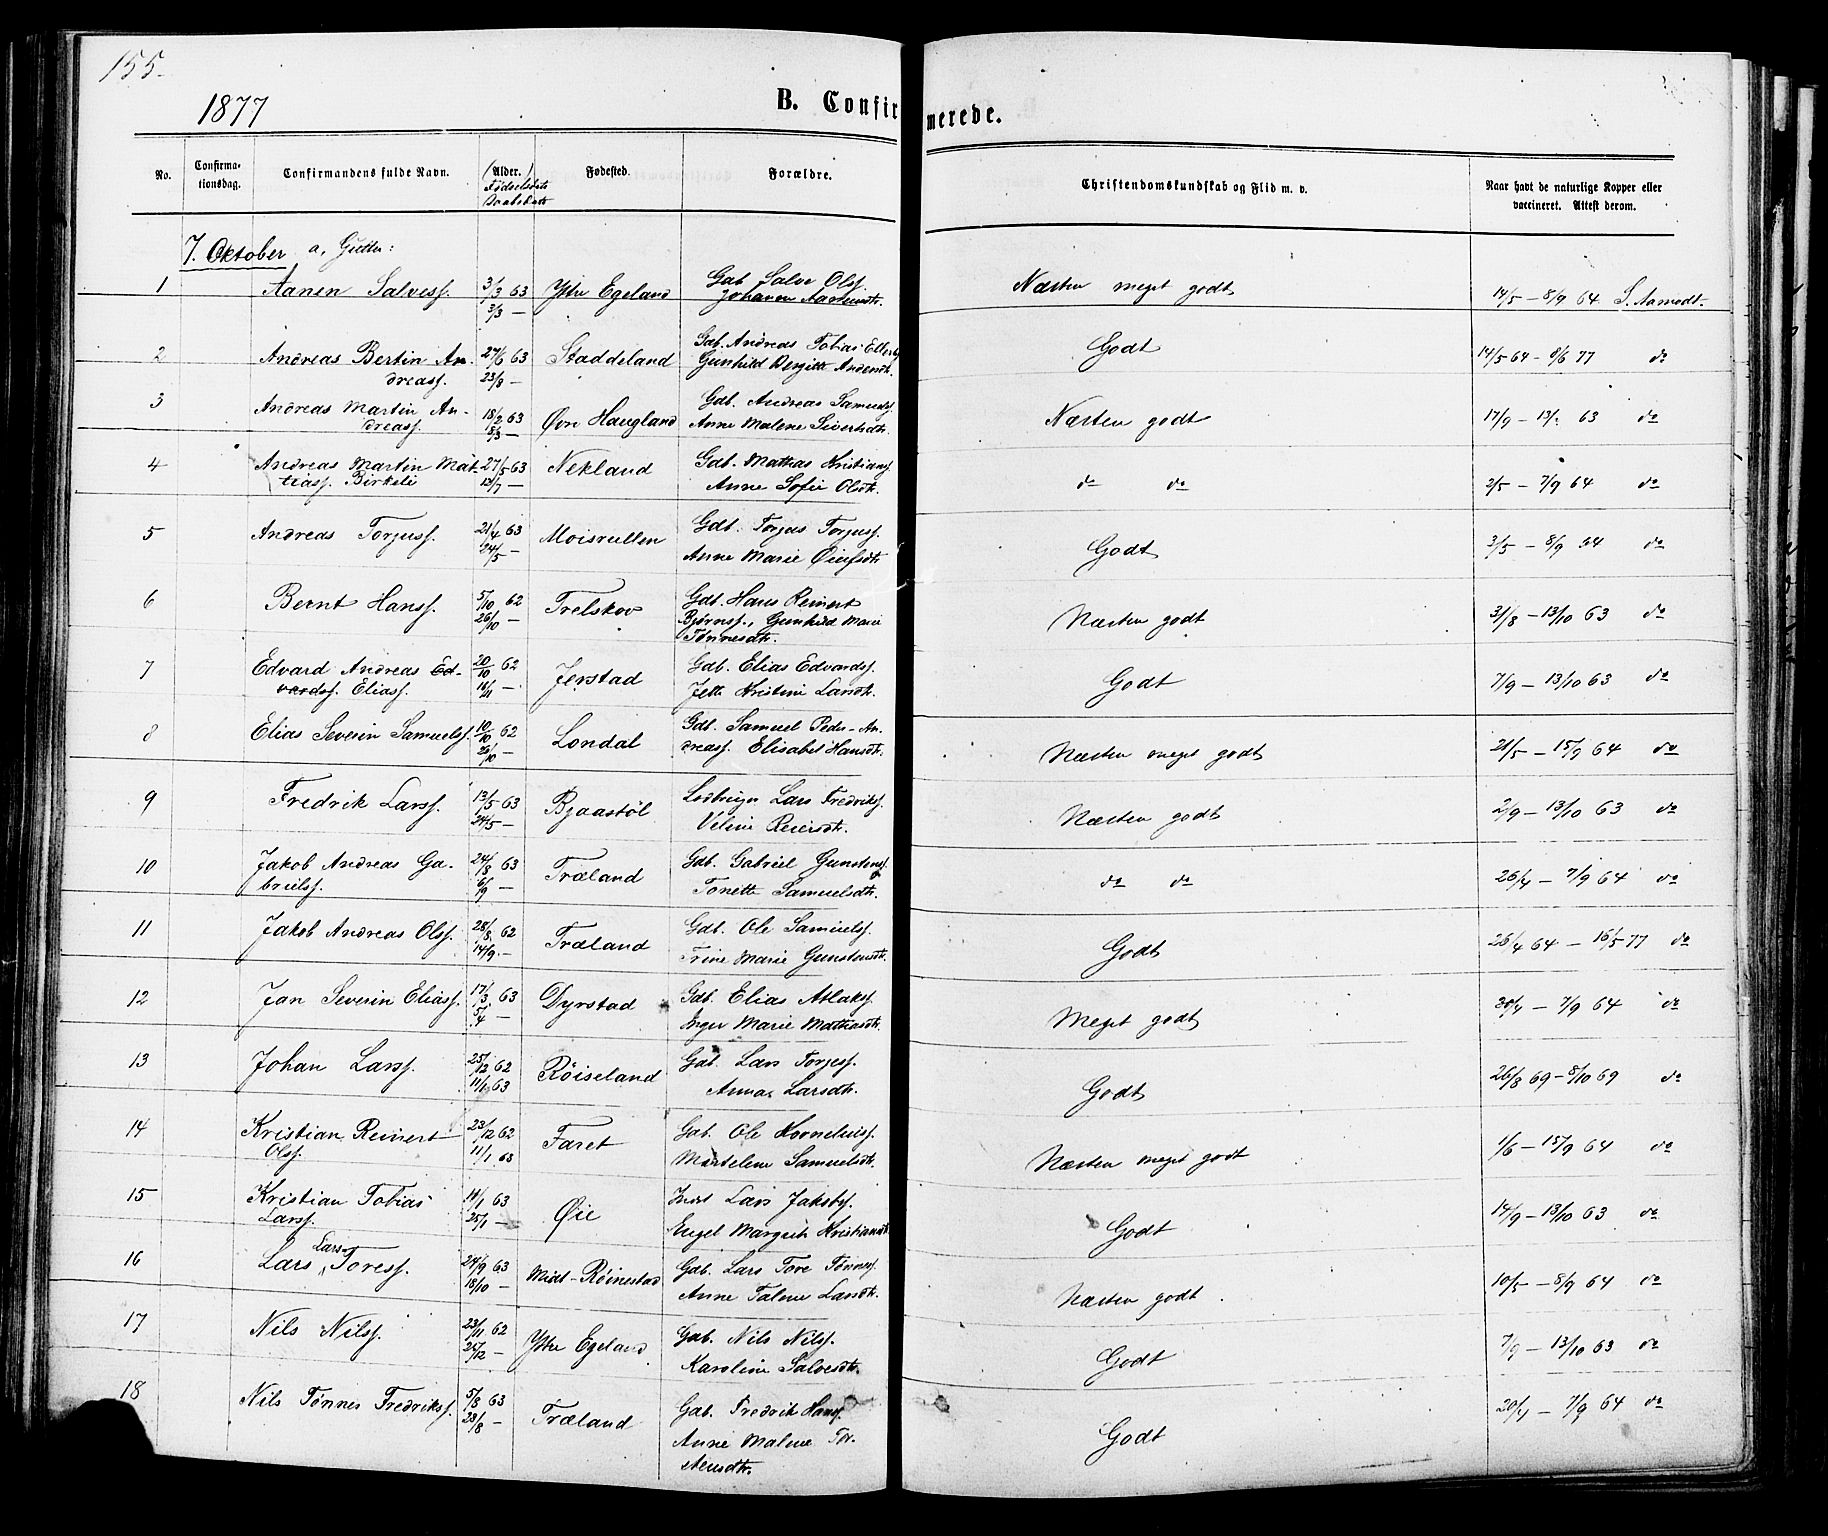 155.
1877
B. Confirmerede.
No. Confirmationsdag. Confirmandens fulde Navn. (Alder.) Fødselsdato Daabsdato Fødested. Forældre. Christendomskundskab og Flid m. v. Naar havt de naturlige Kopper eller vaccineret. Attest derom.
7. Oktober a, Gutter:
1 Aanen Salvess. 3/3 63 3/3 — Ytre Egeland Gdb. Salve Olss. Johanne Næsten meget godt 14/5 — 8/9 64 S. Aamodt.
2 Andreas Bertin Andreass. 27/6 63 23/8 — Staddeland Gdb. Andreas Tobias Gunhild Bergitte Godt 14/5 64 — 8/6 77 do
3 Andreas Martin Andreass. 18/2 63 8/3 — Øvre Haugland Gdb. Andreas Samuelss. Anne Malene Sivertsdtr. Næsten godt 17/9 — 13/ 63 do
4 Andreas Martin Mattiass. Birkeli 27/5 63 12/7 — Nekland Gdb. Mathias Kristianss. Anne Sofie Olsdtr. do do 2/5 — 7/9 64 do
5 Andreas Torjuss. 21/4 63 24/5 — Moisvullen Gdb. Torjus Torjuss. Anne Marie Godt 3/5 — 8/9 64 do
6 Bernt Hanss. 5/10 62 26/10 — Trelskov Gdb. Hans Reinert Bjørnss., Gunhild Marie Tønnesdtr. Næsten godt 31/8 — 13/10 63 do
7 Edvard Andreas Edvardss. Eliass. 20/10 62 16/11 — Jerstad Gdb. Elias Edvardss. Jette Kristine Larsdtr. Godt 7/9 — 13/10 63 do
8 Elias Severin Samuelss. 10/10 62 26/10 — Londal Gdb. Samuel Peder Andreass. Elisabet Hansdtr. Næsten meget godt 21/5 — 15/9 64 do
9 Fredrik Larss. 13/5 63 24/5 — Bjaastøl Lars Fredrikss. Veline Reiersdtr. Næsten godt 2/9 — 13/10 63 do
10 Jakob Andreas Gabrielss. 24/8 63 6/9 — Træland Gdb. Gabriel Gunstenss. Tonette Samuelsdtr. do do 26/4 — 7/9 64 do
11 Jakob Andreas Olss. 28/8 62 14/9 — Træland Gdb. Ole Samuelss. Trine Marie Gunstensdtr. Godt 26/4 64 — 16/5 77 do
12 Jan Severin Eliass. 17/3 63 5/4 — Dyrstad Gdb. Elias Atlakss. Inger Marie Mathiasdtr. Meget godt 30/4 — 7/9 64 do
13 Johan Larss. 25/12 62 11/1 63 Røiseland Gdb. Lars Torjess. Anna Larsdtr. Godt 26/8 69 — 8/10 69 do
14 Kristian Reinert Olss. 23/12 62 11/1 63 Faret Gdb. Ole Korneliuss. Martelene Samuelsdtr. Næsten meget godt 1/6 — 15/9 64 do
15 Kristian Tobias Larss. 14/1 63 25/1 — Øie Inds. Lars Jakobs. Engel Margrete Kristiansdtr. Godt 14/9 — 13/10 63 do
16 Lars Lars Toress. 24/9 63 18/10 — Midt-Røinestad Gdb. Lars Tore Tønness. Anne Taline Larsdtr. Næsten godt. 10/5 — 8/9 64 do
17 Nils Nilss. 23/11 62 26/12 — Ytre Egeland Gdb. Nils Nilss. Karoline Salvesdtr. Godt 7/9 — 13/10 63 do
18 Nils Tønnes Fredrikss. 5/8 63 23/8 — Træland Gdb. Fredrik Hanss. Anne Malene Godt 20/4 — 7/9 64 do